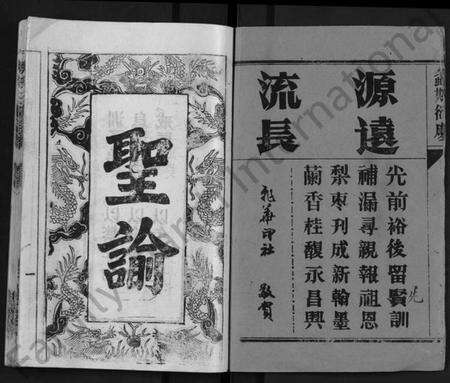 源遠
流長
光前裕後留賢訓
補漏尋親報祖恩
梨枣刊成新翰墨
蘭香桂馥永昌興
印社 敬賀
聖諭
Family International